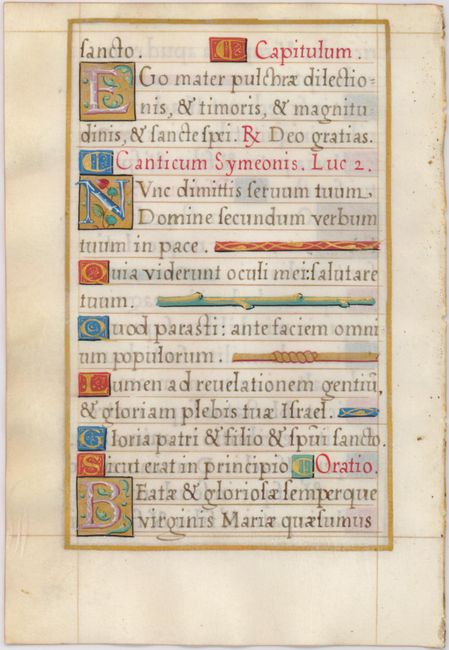 sancto. Capitulum.
EGo mater pulchræ dilectio-
nis, & timoris, & magnitu
dinis, & sanctę spei. ℟ Deo gratias.
Canticum Symeonis. Luc 2.
NVnc dimittis seruum tuum
Domine secundum verbum
tuum in pace.
Quia viderunt oculi mei: salutare
tuum.
Quod parasti: ante faciem omni
um populorum.
Lumen ad reuelationem gentiū,
& gloriam plebis tuæ Israel.
Gloria patri & filio & spūi sancto.
Sicut erat in principio Oratio.
BEatæ & gloriosæ semperque
virginis Mariæ quæsumus